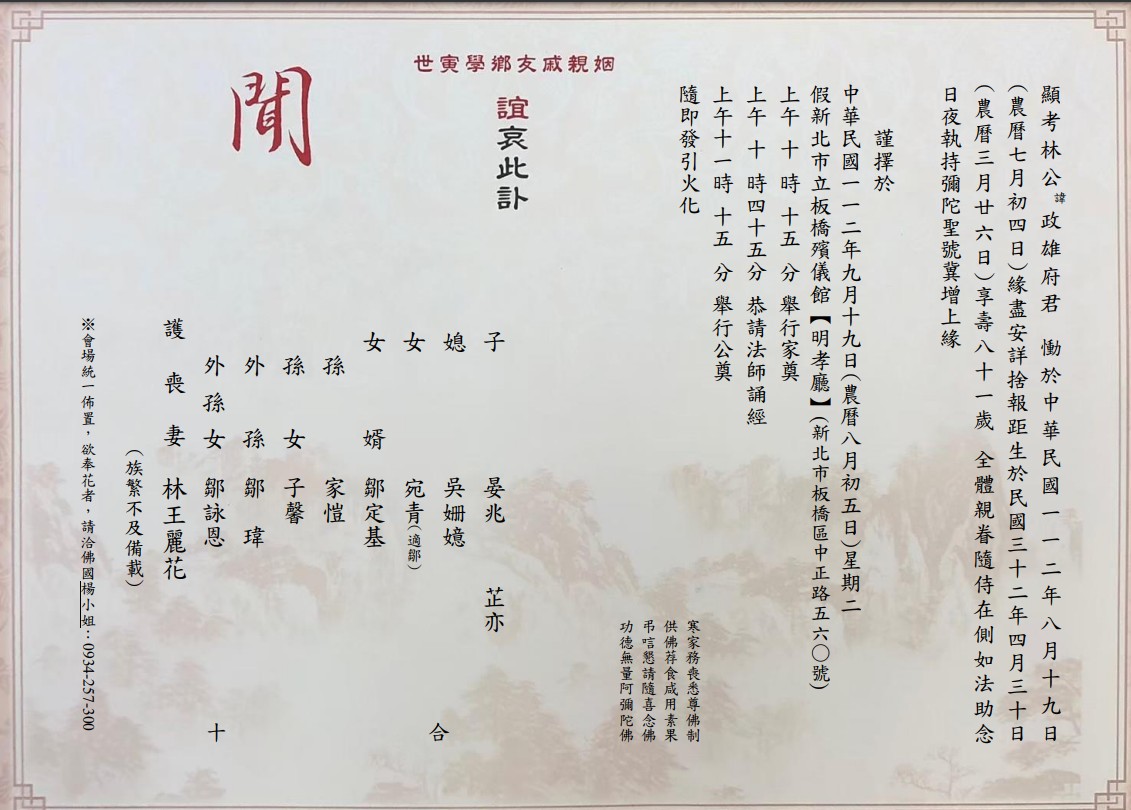 顯考林公諱政雄府君　慟於中華民國一一二年八月十九日
（農曆七月初四日）緣盡安詳捨報距生於民國三十二年四月三十日
（農曆三月廿六日）享壽八十一歲　全體親眷隨侍在側如法助念
日夜執持彌陀聖號冀增上緣
謹擇於
中華民國一一二年九月十九日（農曆八月初五日）星期二
假新北市立板橋殯儀館【明孝廳】（新北市板橋區中正路五六〇號）
上午 十 時 十五 分 舉行家奠
上午 十 時四十五分 恭請法師誦經
上午十一時 十五 分 舉行公奠
隨即發引火化
寒家務喪悉尊佛制
供佛荐食咸用素果
弔唁懇請隨喜念佛
功德無量阿彌陀佛
姻親戚友鄉學寅世
誼哀此訃
聞
子　晏兆　芷亦
媳　吳姍嬑
女　宛青（適鄒）
女婿　鄒定基
孫　家愷
孫女　子馨
外孫　鄒瑋
外孫女　鄒詠恩
護喪妻　林王麗花
（族繁不及備載）
合
十
※會場統一佈置，欲奉花者，請洽佛國楊小姐：0934-257-300